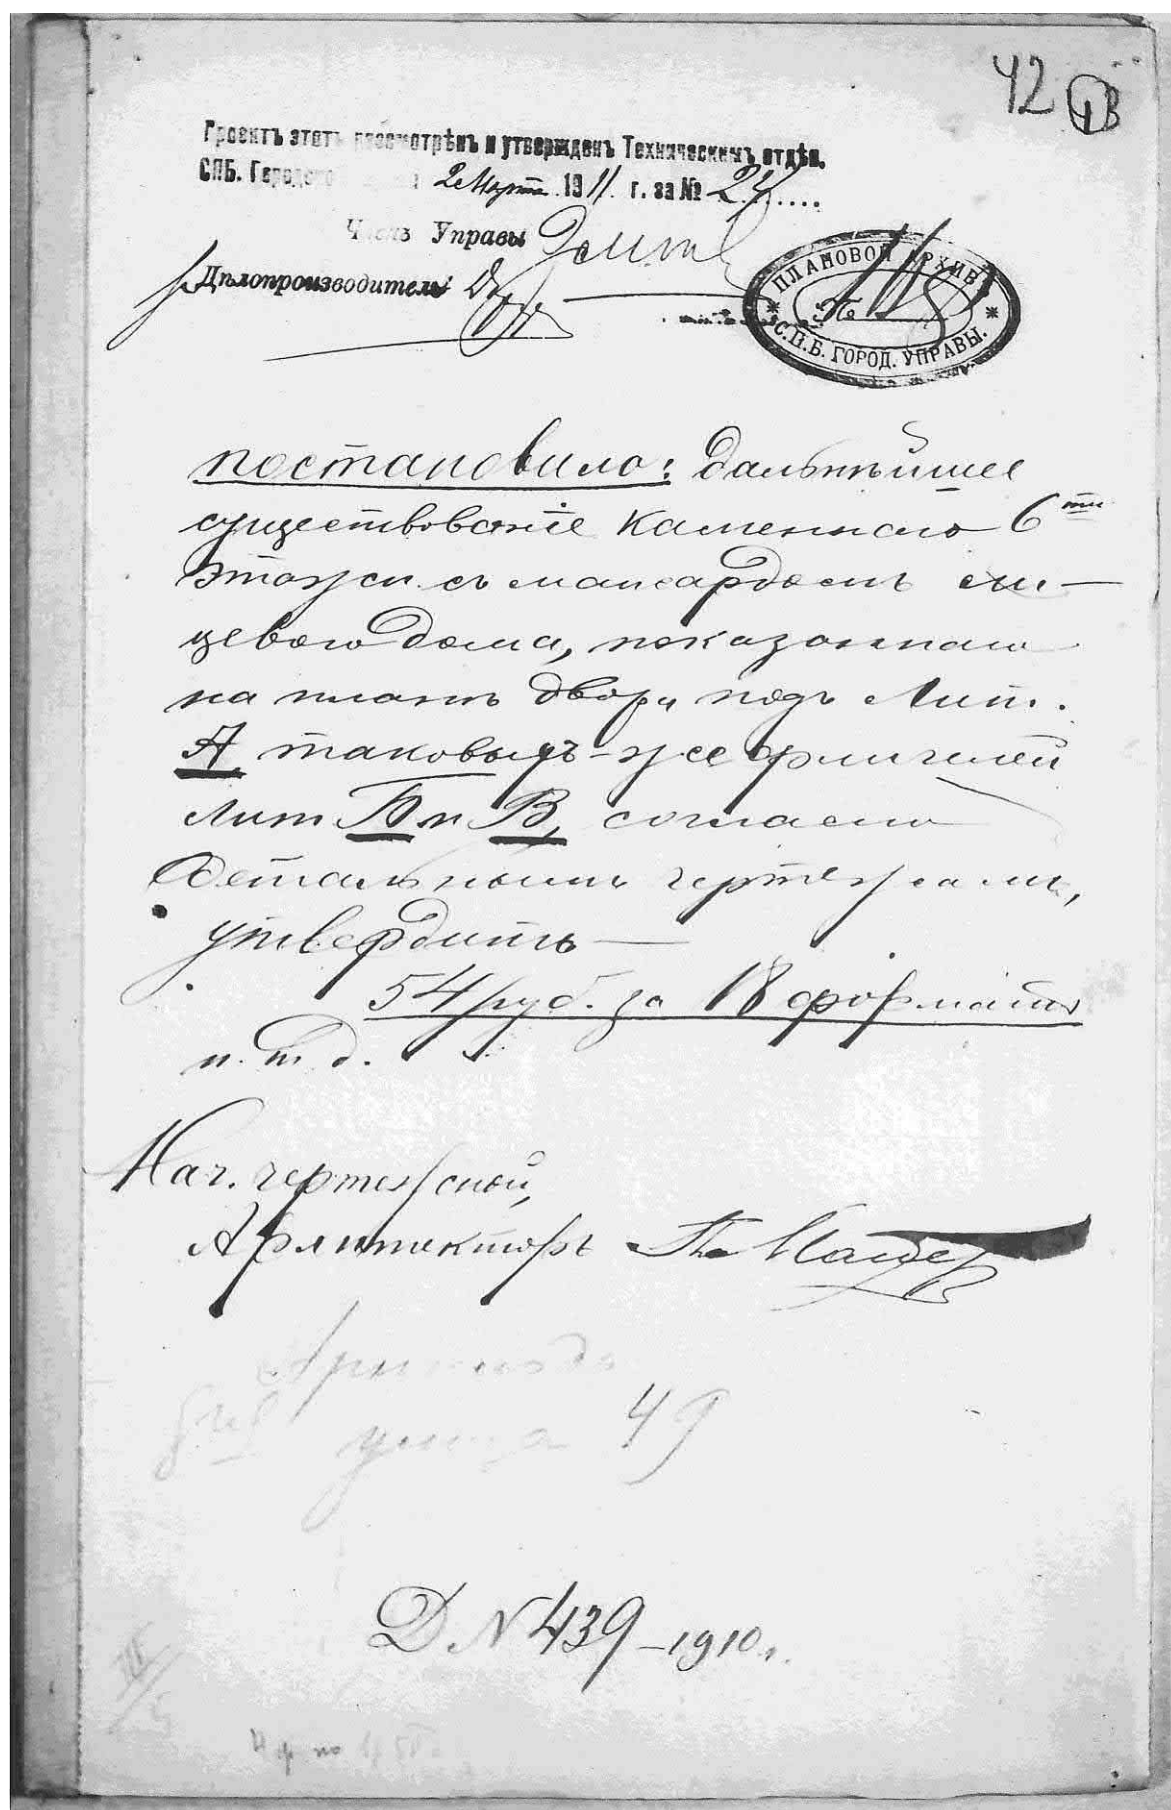 42 1В
Проектъ этотъ разсмотрѣнъ и утвержденъ Техническимъ отдѣл.
СПБ. Городской 2 Марта 1911 г. за №
Членъ Управы
Дѣлопроизводитель
ПЛАНОВОЙ АРХИВЪ
№ 118
С.П.Б. ГОРОД. УПРАВЫ.
постановило: дальнѣйшее
существованіе каменнаго 6ти
этажн. съ мансардомъ ли-
цеваго дома, показаннаго
на планѣ двора подъ Лит.
А, таковыхъ-же флигелей
лит Б и В, согласно
детальнымъ чертежамъ,
утвердить
54 руб. за 18 форматъ
и. т. д.
Нач. чертежной,
Архитекторъ
улица 49
Д N 439-1910г.